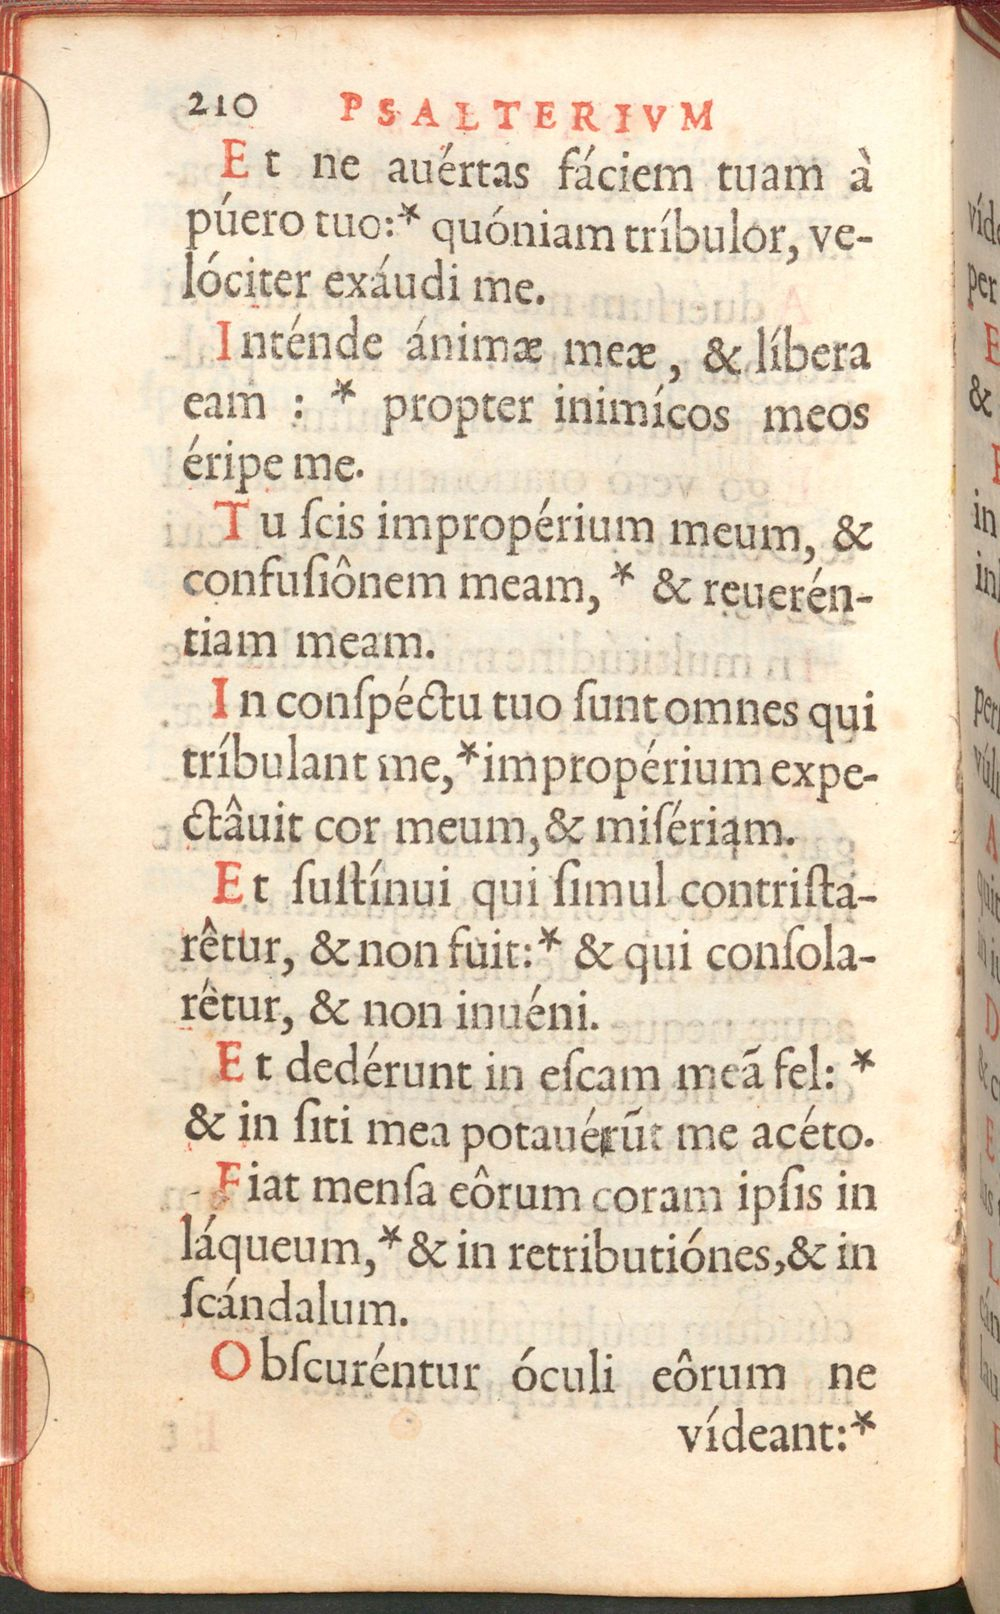 210 PSALTERIVM
Et ne auértas fáciem tuam à
púero tuo:* quóniam tríbulor, ve-
lóciter exáudi me.
Inténde ánimæ meæ, & líbera
eam : * propter inimícos meos
éripe me.
Tu ſcis impropérium meum, &
confuſiônem meam, * & reuerén-
tiam meam.
In conſpéctu tuo ſunt omnes qui
tríbulant me,* impropérium expe-
ctâuit cor meum, & miſériam.
Et ſuſtínui qui ſimul contriſta-
rêtur, & non fuit:* & qui conſola-
rêtur, & non inuéni.
Et dedérunt in eſcam meã fel: *
& in ſiti mea potauérũt me acéto.
Fiat menſa eôrum coram ipſis in
láqueum,* & in retributiónes, & in
ſcándalum.
Obſcuréntur óculi eôrum ne
vídeant:*
per
&
in